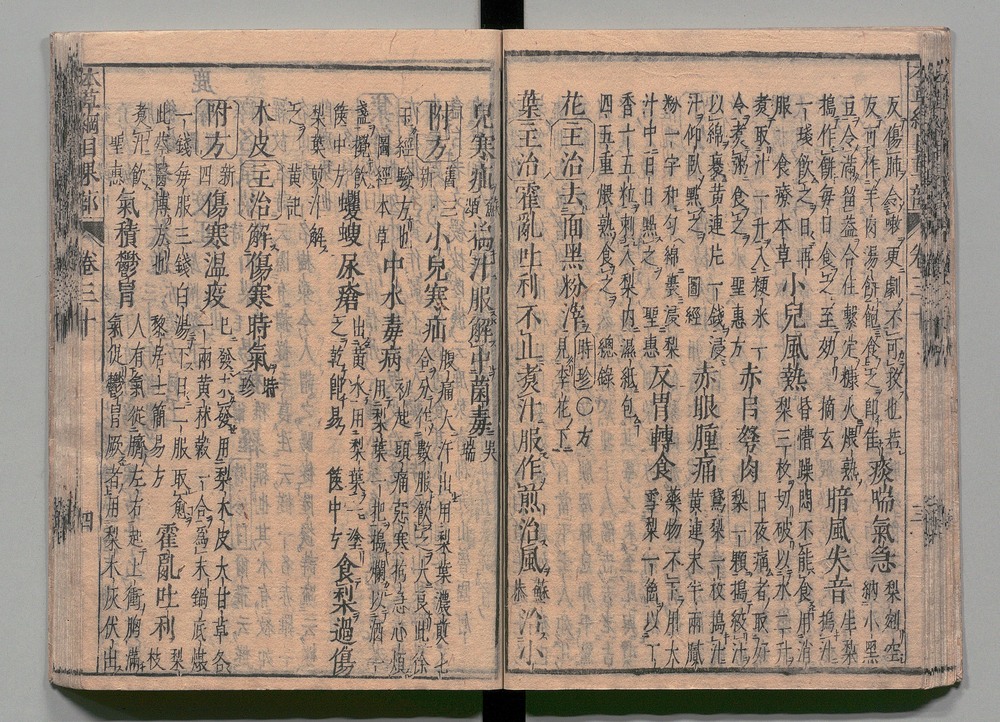 反傷肺令嗽更劇不可救也若
反可作羊肉湯餅飽食之即佳
痰喘氣急
梨剜空
納小黑
豆令滿留蓋合住繫定糠火煨熟
搗作餅每日食之至効 摘玄
暗風失音
生梨
搗汁
一琖飲之日再
服 食療本草
小兒風熱
昏懵躁悶不能食用消
梨三枚切破以水二升
煮取汁一升入粳米一
合煮粥食之 聖惠方
赤目弩肉
日夜痛者取好
梨一顆搗絞汁
以綿裹黃連片一錢浸
汁仰臥點之 圖經
赤眼腫痛
鵞梨一枚搗汁
黃連末半兩膩
粉一字和勻綿裹浸梨
汁中日日點之 聖惠
反胃轉食
藥物不下用大
雪梨一箇以丁
香十五粒刺入梨内濕紙包
四五重煨熟食之 總錄
花主治去面黑粉滓 時珍○方
見李花下
葉主治霍亂吐利不止煮汁服作煎治風 蘇恭 治小
兒寒疝 蘇頌 搗汁服解中菌毒 吳瑞
附方 舊三
新一
小兒寒疝
腹痛大汗出用梨葉濃煎七
合分作數服飲之大良此徐
玉經驗方也
圖經本草
中水毒病
初起頭痛惡寒拘急心煩
用梨葉一把搗爛以酒一
盞攪飲
篋中方
蠼螋尿瘡
出黃水用梨葉一塗
之乾即易 篋中方
食梨過傷
梨葉煎汁解
之 黃記
木皮主治解傷寒時氣 時珍
附方 新
四
傷寒温疫
已發未發用梨木皮大甘草各
一兩黃秫穀一合爲末鍋底煤
一錢每服三錢白湯下日二服取愈
此蔡醫博方也 黎居士簡易方
霍亂吐利
梨枝
煮汁飲
聖惠
氣積鬱冒
人有氣從臍左右起上衝胸滿
氣促鬱冒厥者用梨木灰伏出
本草綱目果部 卷三十 四